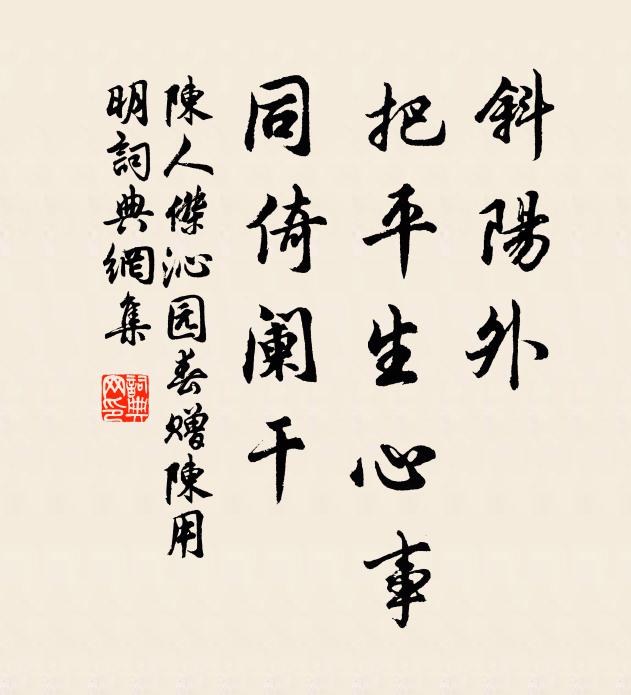 斜陽外
把平生心事
同倚阑干
陳人傑沁园春赠陳用
明詞典網集
詞典网印